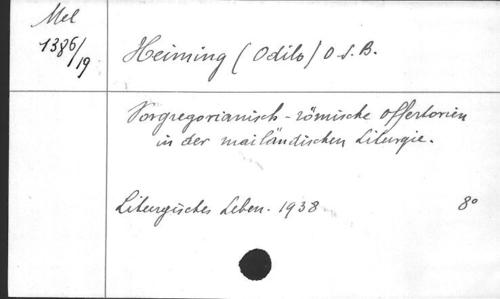 Mel
1386/19
Heiming (Odilo) O.S.B.
Vorgregorianisch-römische Offertorien
in der mailändischen Liturgie.
Liturgisches Leben. 1938 8°